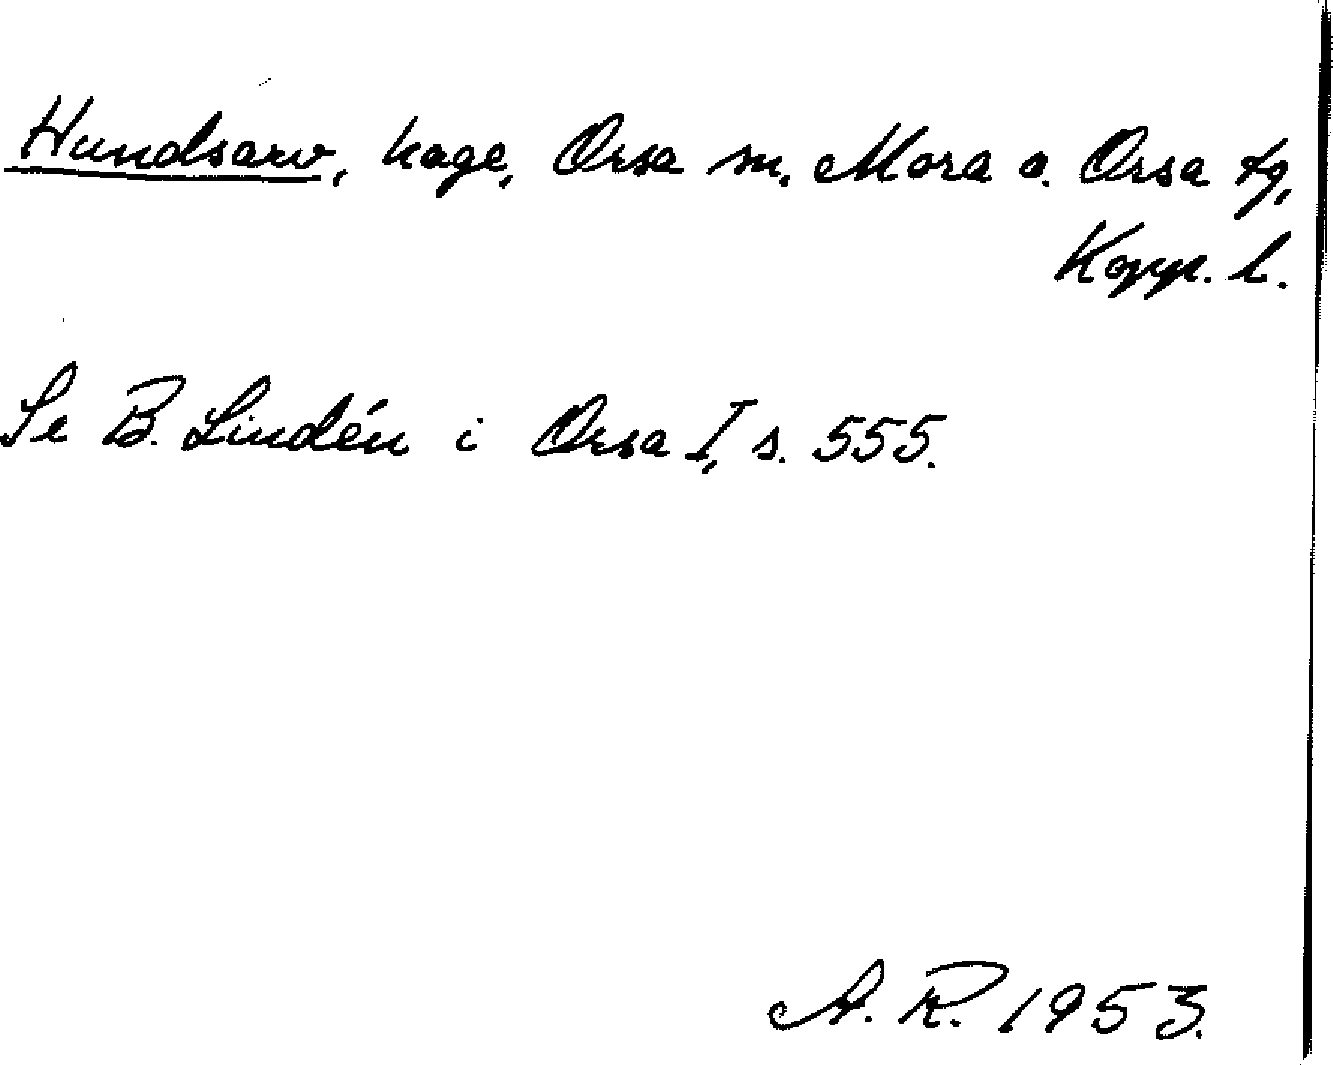 Hundsarv, hage, Orsa sn, Mora o. Orsa tg,
Kopp. l.
Se B. Lindén i Orsa I, s. 555.
A. R. 1953.